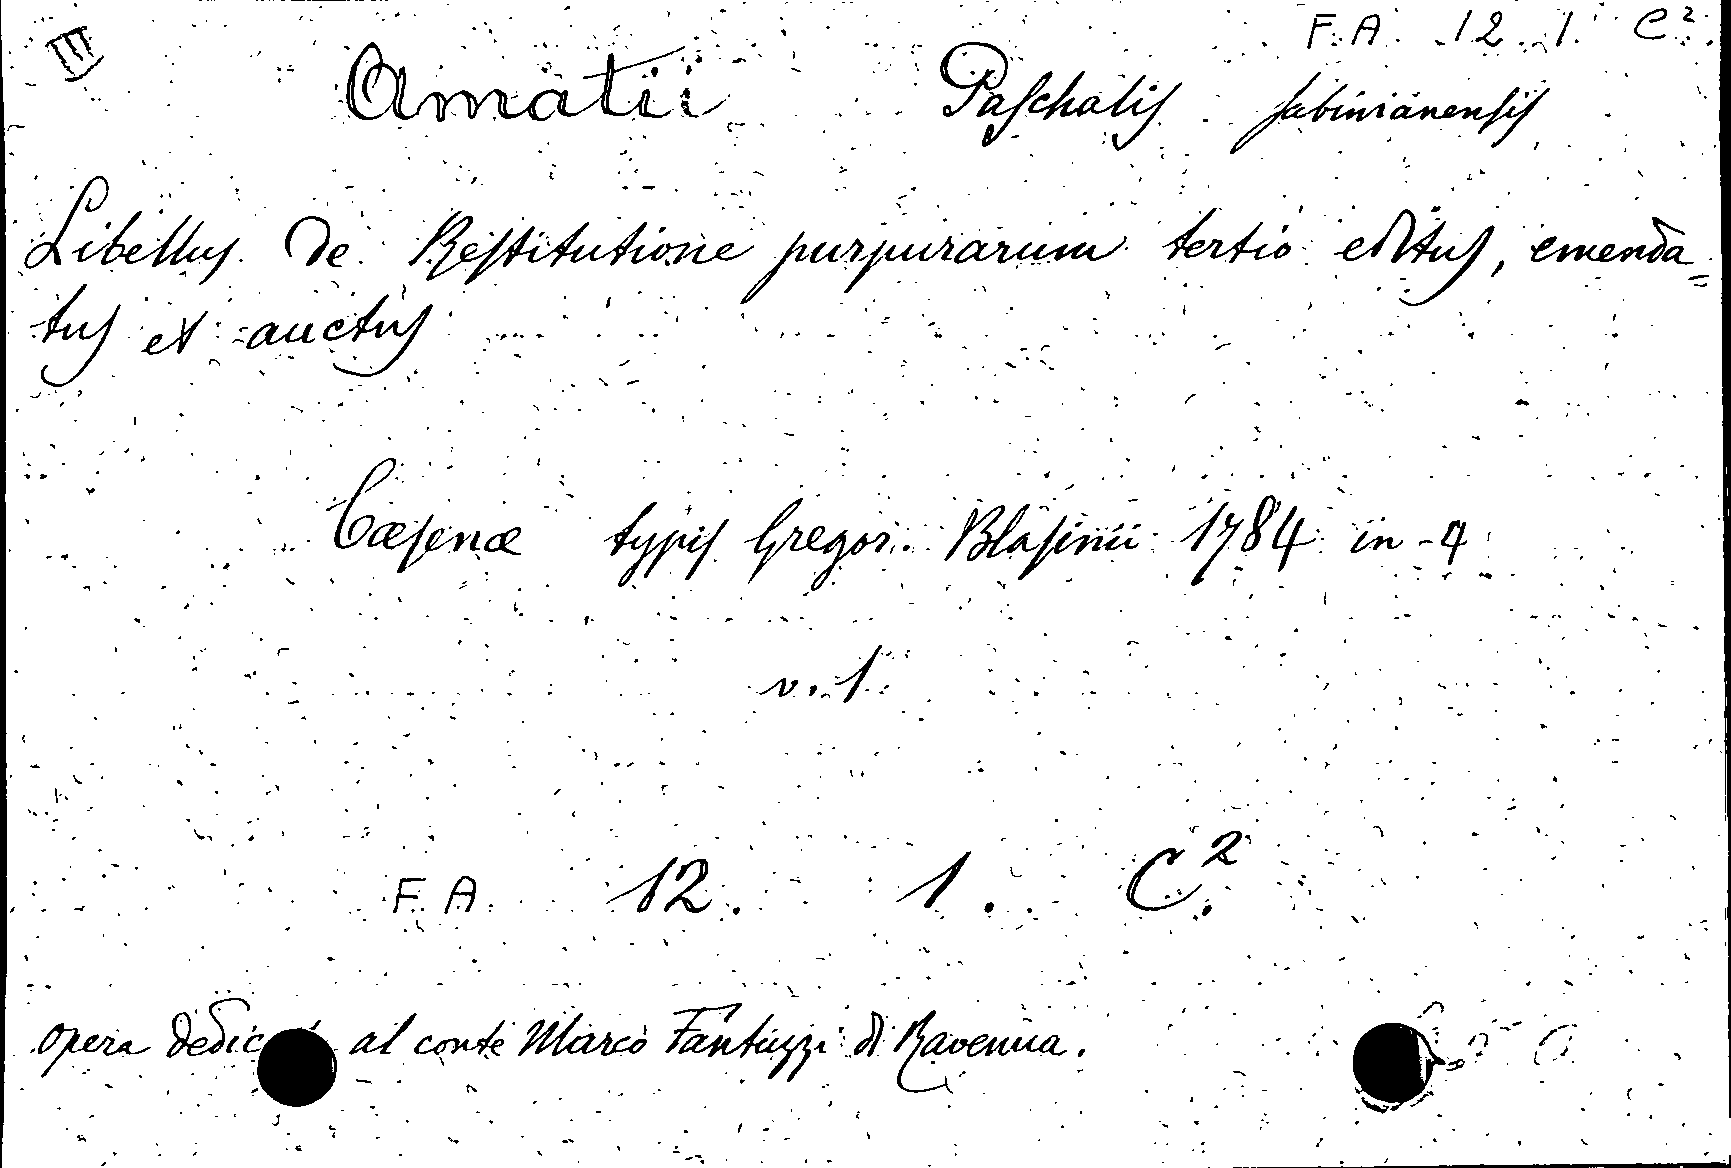 III
F. A. 12. 1. C².
Amatii Paschalis sabinianensis
Libellus De Restitutione purpurarum tertio editus, emenda=
tus et auctus
Cæsenæ typis Gregor. Blasinii 1784 in-4
v. 1
F. A. 12. 1. C².
opera dedic al conte Marco Fantuzzi di Ravenna.